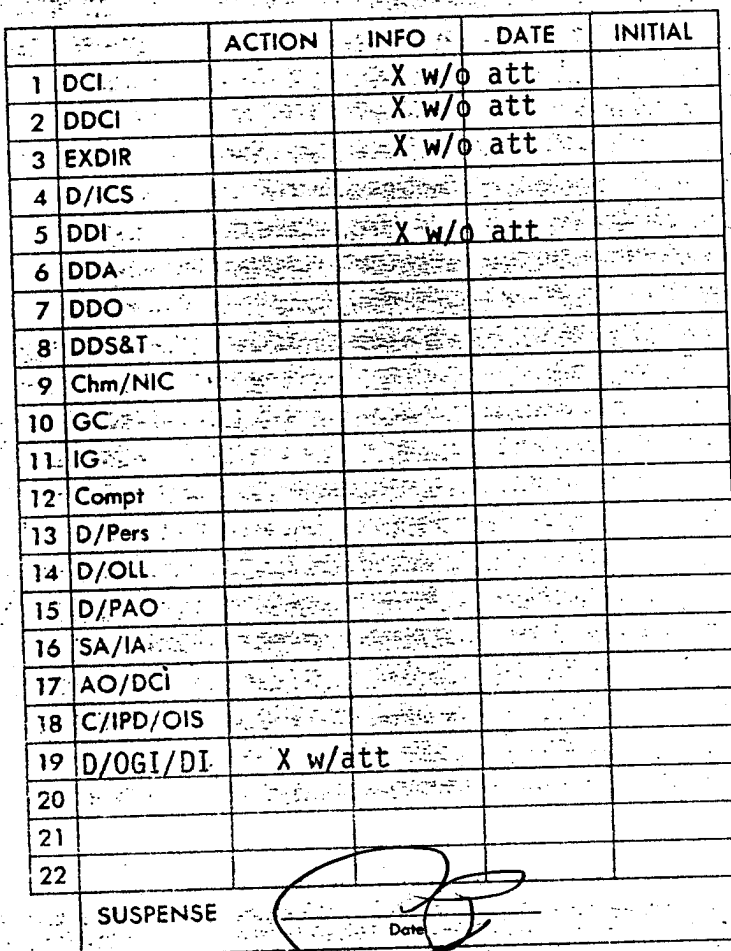 ACTION INFO DATE INITIAL
1 DCI X w/o att
2 DDCI X w/o att
3 EXDIR X w/o att
4 D/ICS
5 DDI X w/o att
6 DDA
7 DDO
8 DDS&T
9 Chm/NIC
10 GC
11 IG
12 Compt
13 D/Pers
14 D/OLL
15 D/PAO
16 SA/IA
17 AO/DCI
18 C/IPD/OIS
19 D/OGI/DI X w/att
20
21
22
SUSPENSE
Date